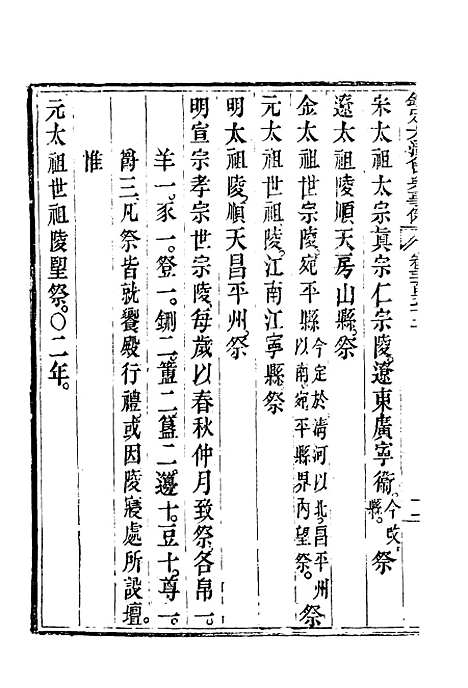 欽定大清會典事例
宋太祖太宗眞宗仁宗陵。遼東廣寧衛。今改縣。祭
遼太祖陵順天房山縣。祭
金太祖世宗陵。宛平縣今定於淸河以北。昌平州以南。宛平縣界內望祭。祭
元太祖陵。江南江寧縣祭
明太祖陵。順天昌平州。祭
明宣宗孝宗世宗陵。每歲以春秋仲月致祭。各帛一。
羊一。豕一。登一。鉶二。簠二。簋二。籩十。豆十。尊一。
爵三。凡祭皆就饗殿行禮。或因陵寢處所設壇。
惟
元太祖世祖陵望祭。○二年。
二